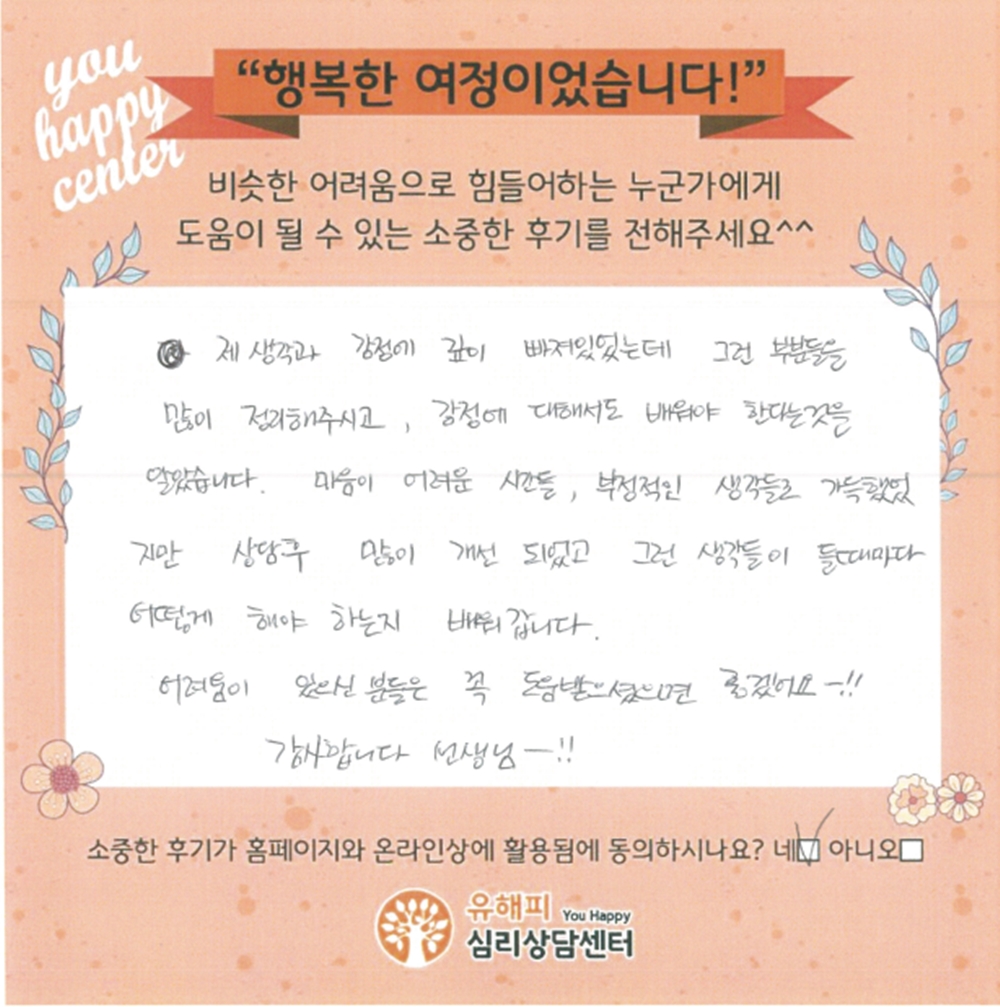 you
happy
center
“행복한 여정이었습니다!”
비슷한 어려움으로 힘들어하는 누군가에게
도움이 될 수 있는 소중한 후기를 전해주세요^^
제 생각과 감정에 깊이 빠져있었는데 그런 부분들을
많이 정리해주시고, 감정에 대해서도 배워야 한다는것을
알았습니다. 마음이 어려운 시간들, 부정적인 생각들로 가득했었
지만 상담후 많이 개선 되었고 그런 생각들이 들때마다
어떻게 해야 하는지 배워갑니다.
어려움이 있으신 분들은 꼭 도움받으셨으면 좋겠어요ㅡ!!
감사합니다 선생님ㅡ!!
소중한 후기가 홈페이지와 온라인상에 활용됨에 동의하시나요? 네 아니오
유해피 You Happy
심리상담센터